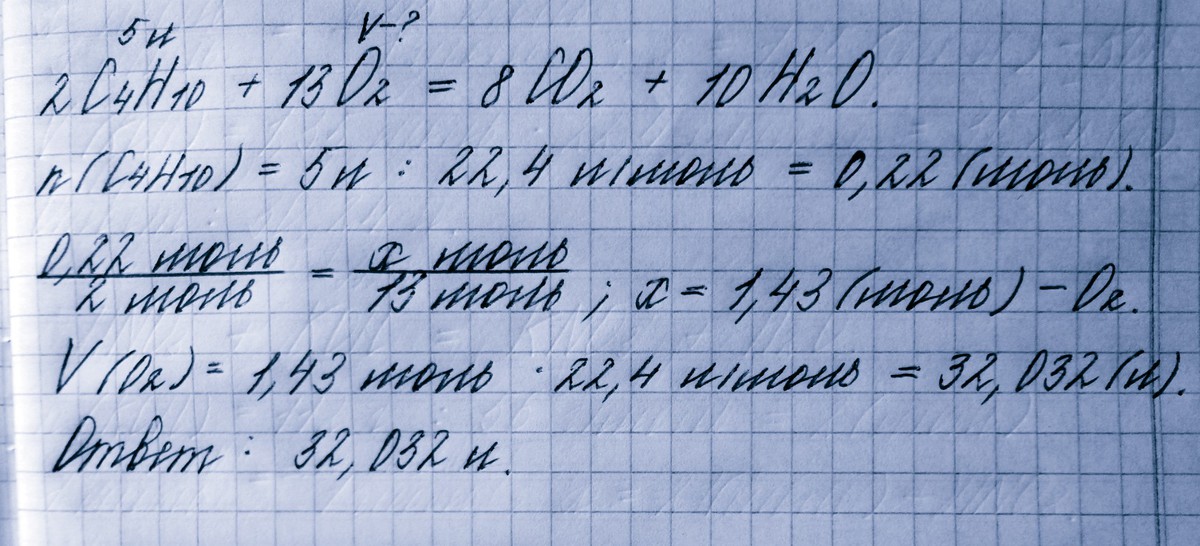 5л V-?
2C4H10 + 13O2 = 8CO2 + 10H2O.
n(C4H10) = 5л : 22,4 л/моль = 0,22 (моль).
0,22 моль / 2 моль = x моль / 13 моль ; x = 1,43 (моль) - O2.
V(O2) = 1,43 моль · 22,4 л/моль = 32,032 (л).
Ответ: 32,032 л.